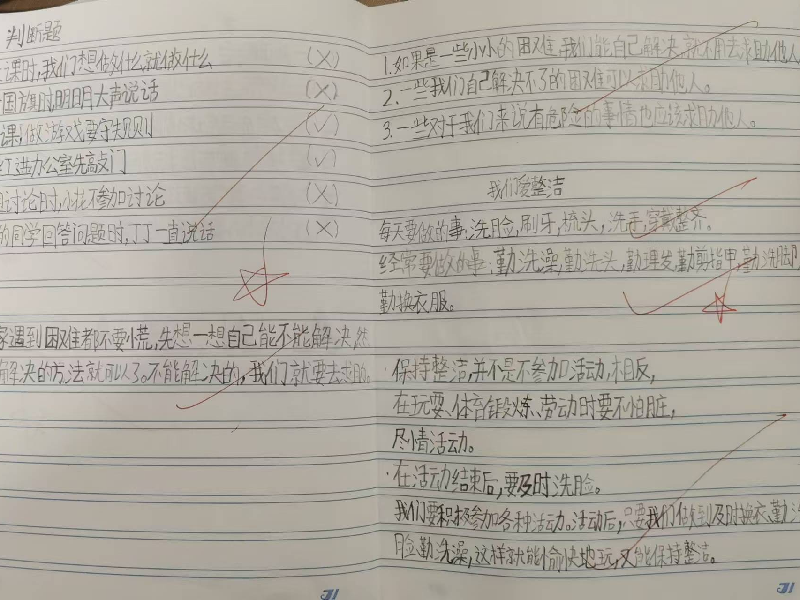 判断题
课时,我们想做什么就做什么 (×)
国旗时明明大声说话 (×)
课,做游戏要守规则 (✓)
红进办公室先敲门 (✓)
讨论时,小花不参加讨论 (×)
的同学回答问题时,丁丁一直说话 (×)
家遇到困难都不要慌,先想一想自己能不能解决,然
解决的方法就可以了。不能解决的,我们就要去求助。
1.如果是一些小小的困难,我们能自己解决,就不用去求助他人
2.一些我们自己解决不了的困难可以求助他人。
3.一些对于我们来说有危险的事情也应该求助他人。
我们爱整洁
每天要做的事:洗脸,刷牙,梳头,洗手,穿戴整齐。
经常要做的事:勤洗澡,勤洗头,勤理发,勤剪指甲,勤洗脚
勤换衣服。
·保持整洁,并不是不参加活动,相反,
在玩耍、体育锻炼、劳动时要不怕脏,
尽情活动。
·在活动结束后,要及时洗脸。
我们要积极参加各种活动。活动后,只要我们做到及时换衣,勤洗
脸勤洗澡,这样就能愉快地玩,又能保持整洁。